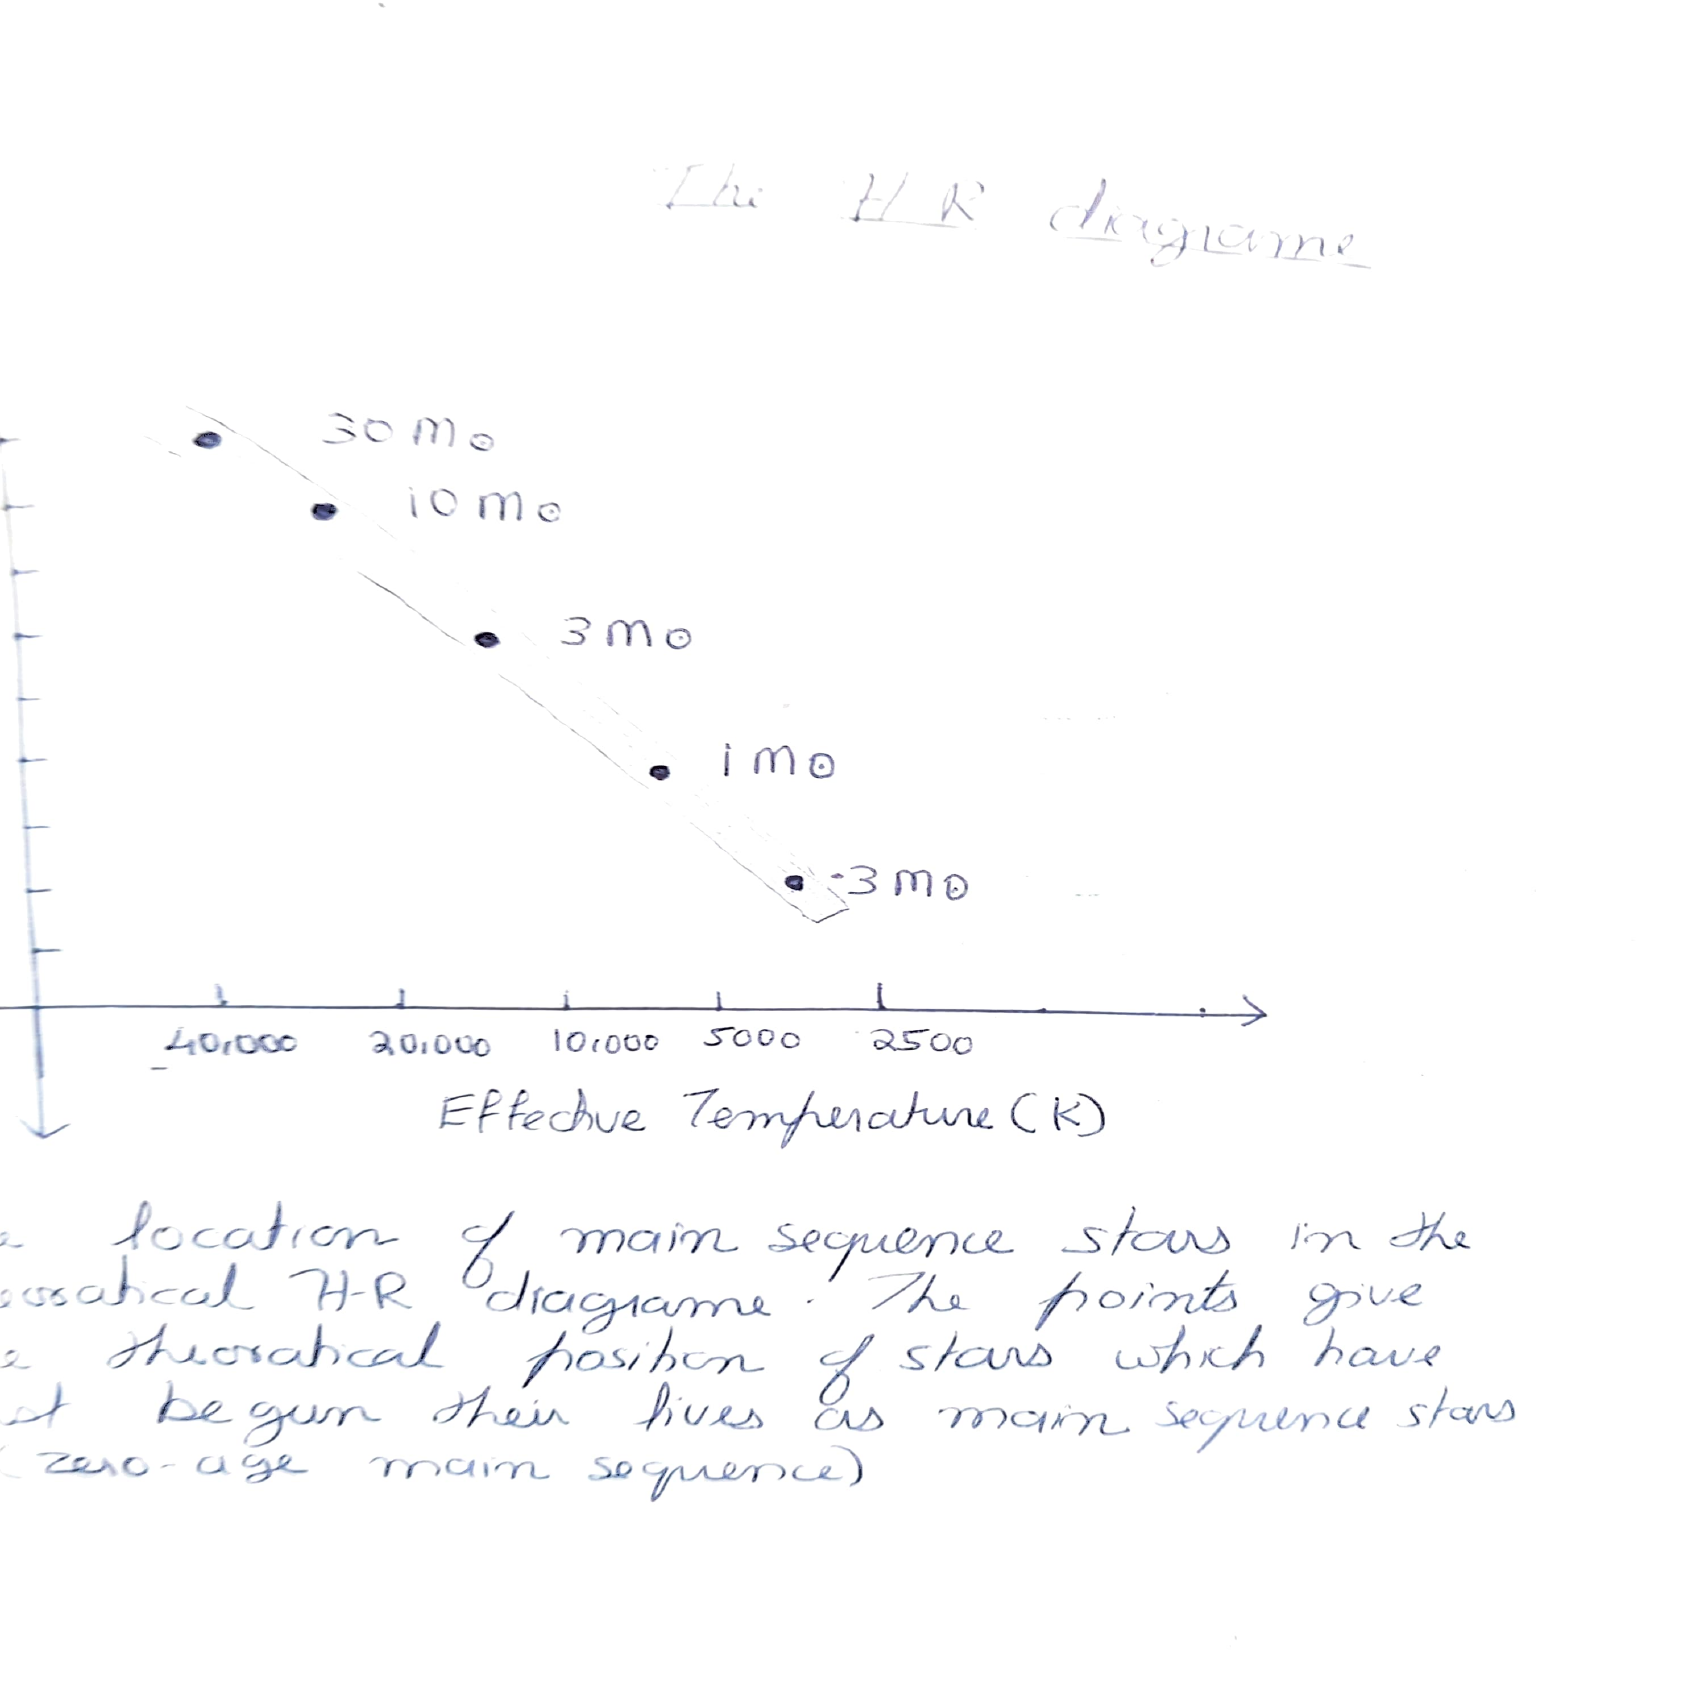 The H R diagrame
30 M⊙
10 M⊙
3 M⊙
1 M⊙
·3 M⊙
40,000 20,000 10,000 5000 2500
Effective Temperature (K)
location of main sequence stars in the
H-R diagrame. The points give
theoratical position of stars which have
begun their lives as main sequence stars
(zero-age main sequence)